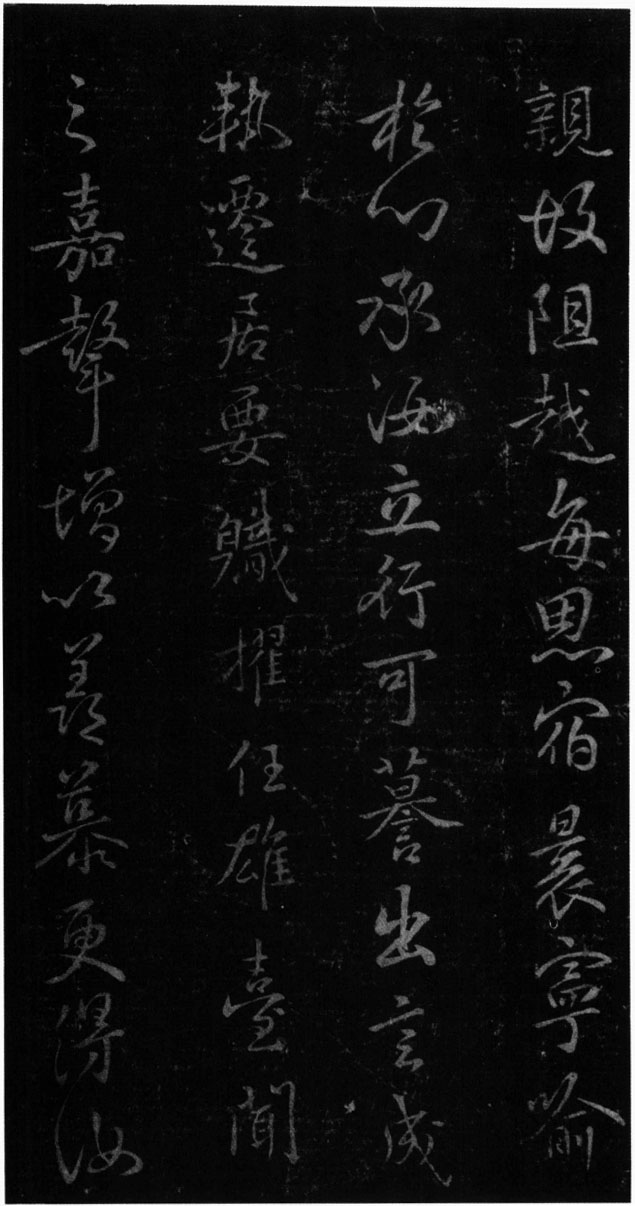 親故阻越每思宿晨寧喻
於心承汝立行可譽出言成
執遷居要職擢任雄臺聞
之嘉聲增以羨慕更得汝